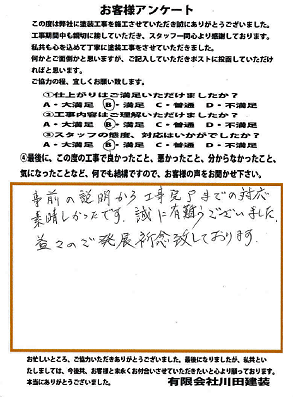 お客様アンケート
この度は弊社に塗装工事を施工させていただき誠にありがとうございました。
工事期間中も親切に接していただき、スタッフ一同心より感謝しております。
私共も心を込めて丁寧に塗装工事をさせていただきました。
何かとご面倒かと思いますが、ご記入していただきポストに投函していただければと思います。
ご協力の程、宜しくお願い致します。
①仕上がりはご満足いただけましたか？
A・大満足 B・満足 C・普通 D・不満足
②工事内容はご理解いただけましたか？
A・大満足 B・満足 C・普通 D・不満足
③スタッフの態度、対応はいかがでしたか？
A・大満足 B・満足 C・普通 D・不満足
④最後に、この度の工事で良かったこと、悪かったこと、分からなかったこと、
気になったことなど、何でも結構ですので、お客様の声をお聞かせ下さい。
事前の説明から工事完了までの対応
素晴しかったです。誠に有難うございました。
益々のご発展祈念致しております。
お忙しいところ、ご協力いただきありがとうございました。最後になりましたが、私共といたしましては、今後共、お客様と末永くお付合いさせていただきたいと心より願っております。
本当にありがとうございました。
有限会社川田建装